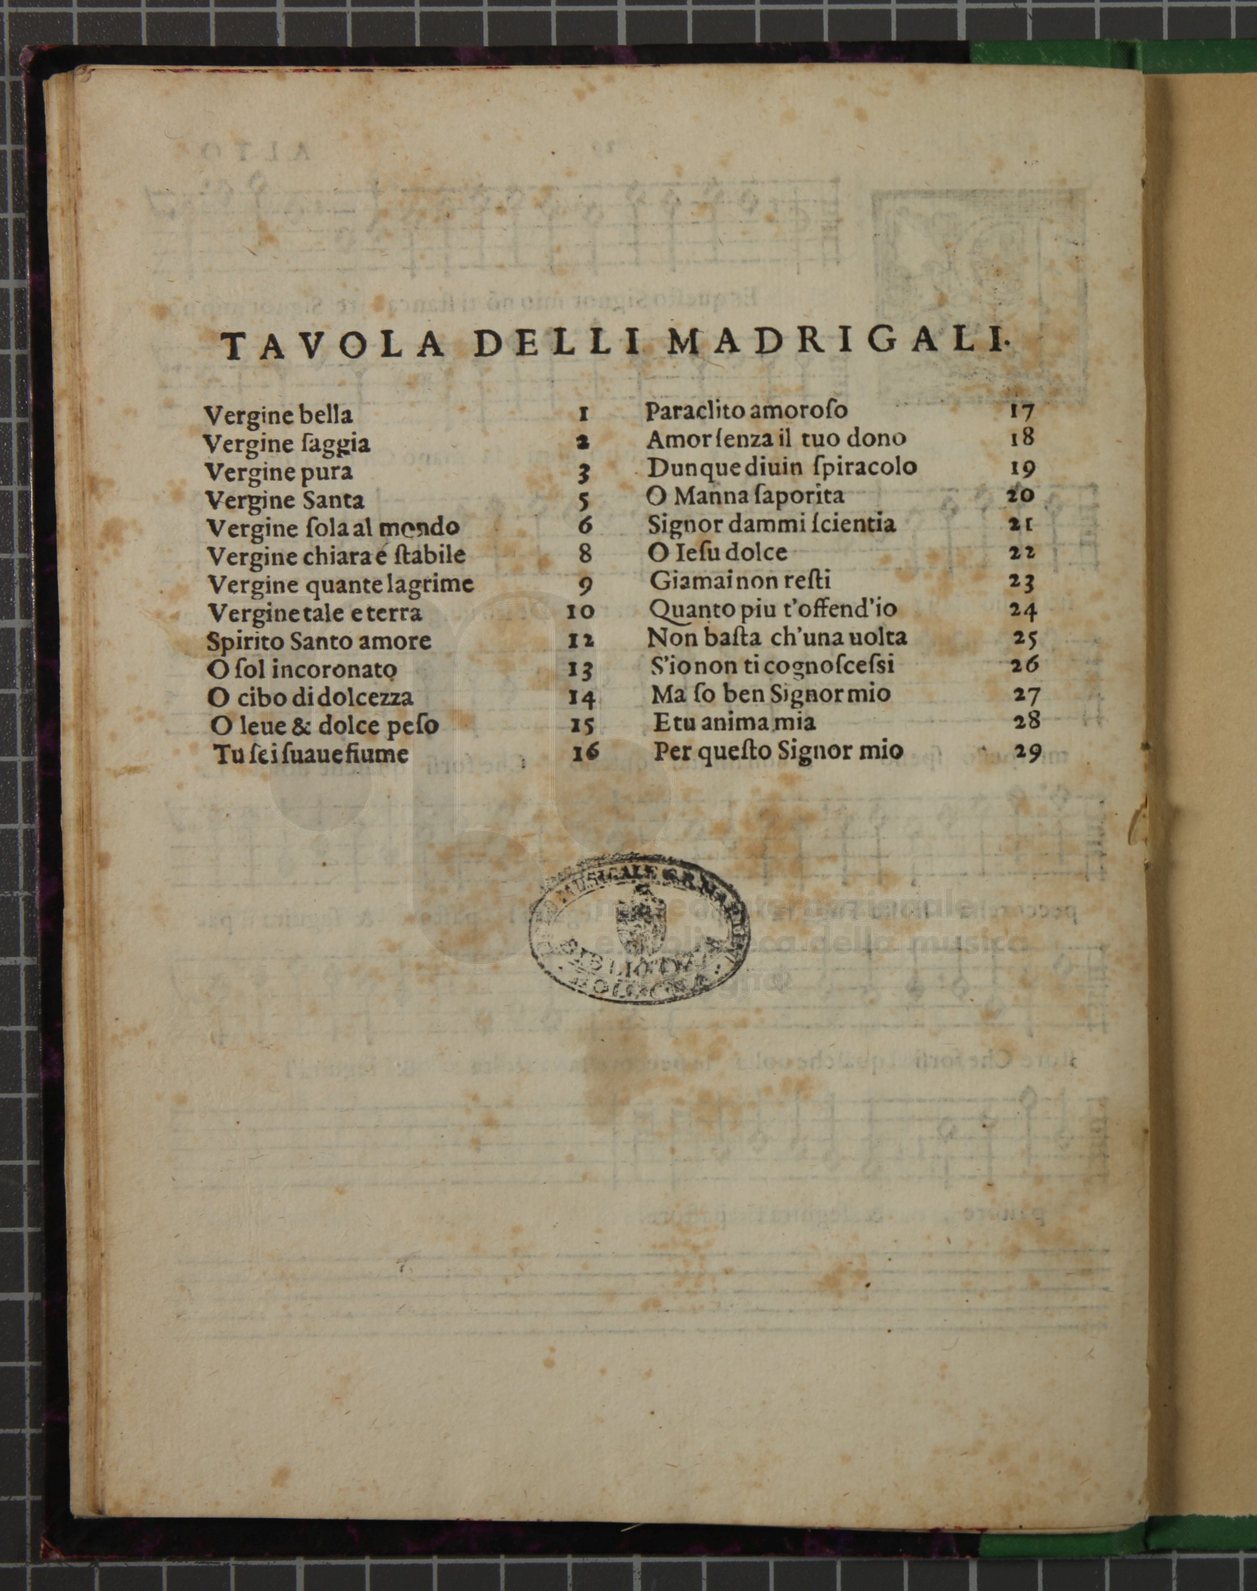 TAVOLA DELLI MADRIGALI.
Vergine bella 1
Vergine ſaggia 2
Vergine pura 3
Vergine Santa 5
Vergine ſola al mondo 6
Vergine chiara é ſtabile 8
Vergine quante lagrime 9
Vergine tale e terra 10
Spirito Santo amore 12
O ſol incoronato 13
O cibo di dolcezza 14
O leue & dolce peſo 15
Tu ſei ſuaue fiume 16
Paraclito amoroſo 17
Amor ſenza il tuo dono 18
Dunque diuin ſpiracolo 19
O Manna ſaporita 20
Signor dammi ſcientia 21
O Ieſu dolce 22
Giamai non reſti 23
Quanto piu t'offend'io 24
Non baſta ch'una uolta 25
S'io non ti cognoſceſsi 26
Ma ſo ben Signor mio 27
E tu anima mia 28
Per queſto Signor mio 29
e biblioteca della musica